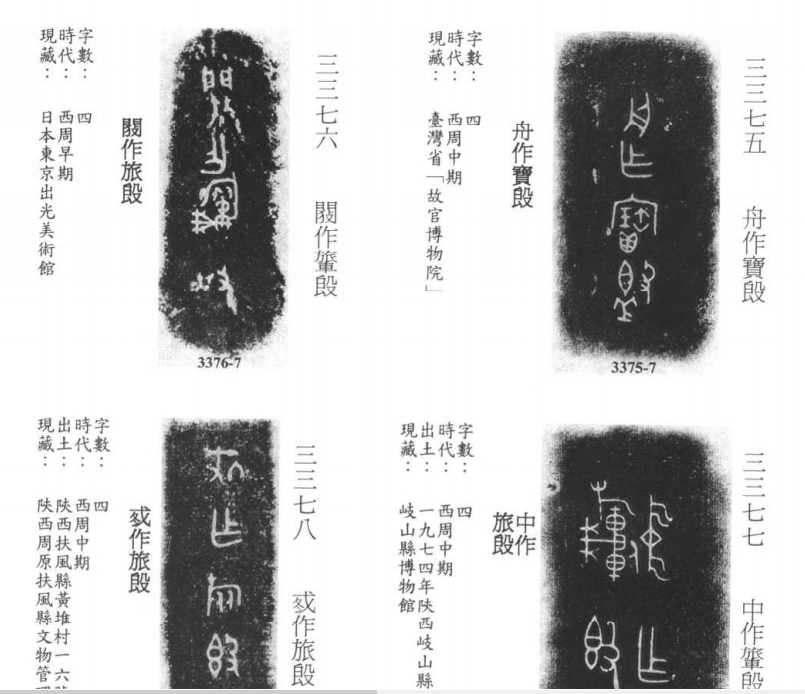 三三七五　舟作寶𣪘
舟作寶𣪘
3375-7
字數：四
時代：西周中期
現藏：臺灣省「故宮博物院」
三三七六　作𣪘
作旅𣪘
3376-7
字數：四
時代：西周早期
現藏：日本東京出光美術館
三三七七　中作𣪘
中作
旅𣪘
字數：四
時代：西周中期
出土：一九七四年陝西岐山縣
現藏：岐山縣博物館
三三七八　作旅𣪘
作旅𣪘
字數：四
時代：西周中期
出土：陝西扶風縣黃堆村一六
現藏：陝西周原扶風縣文物管